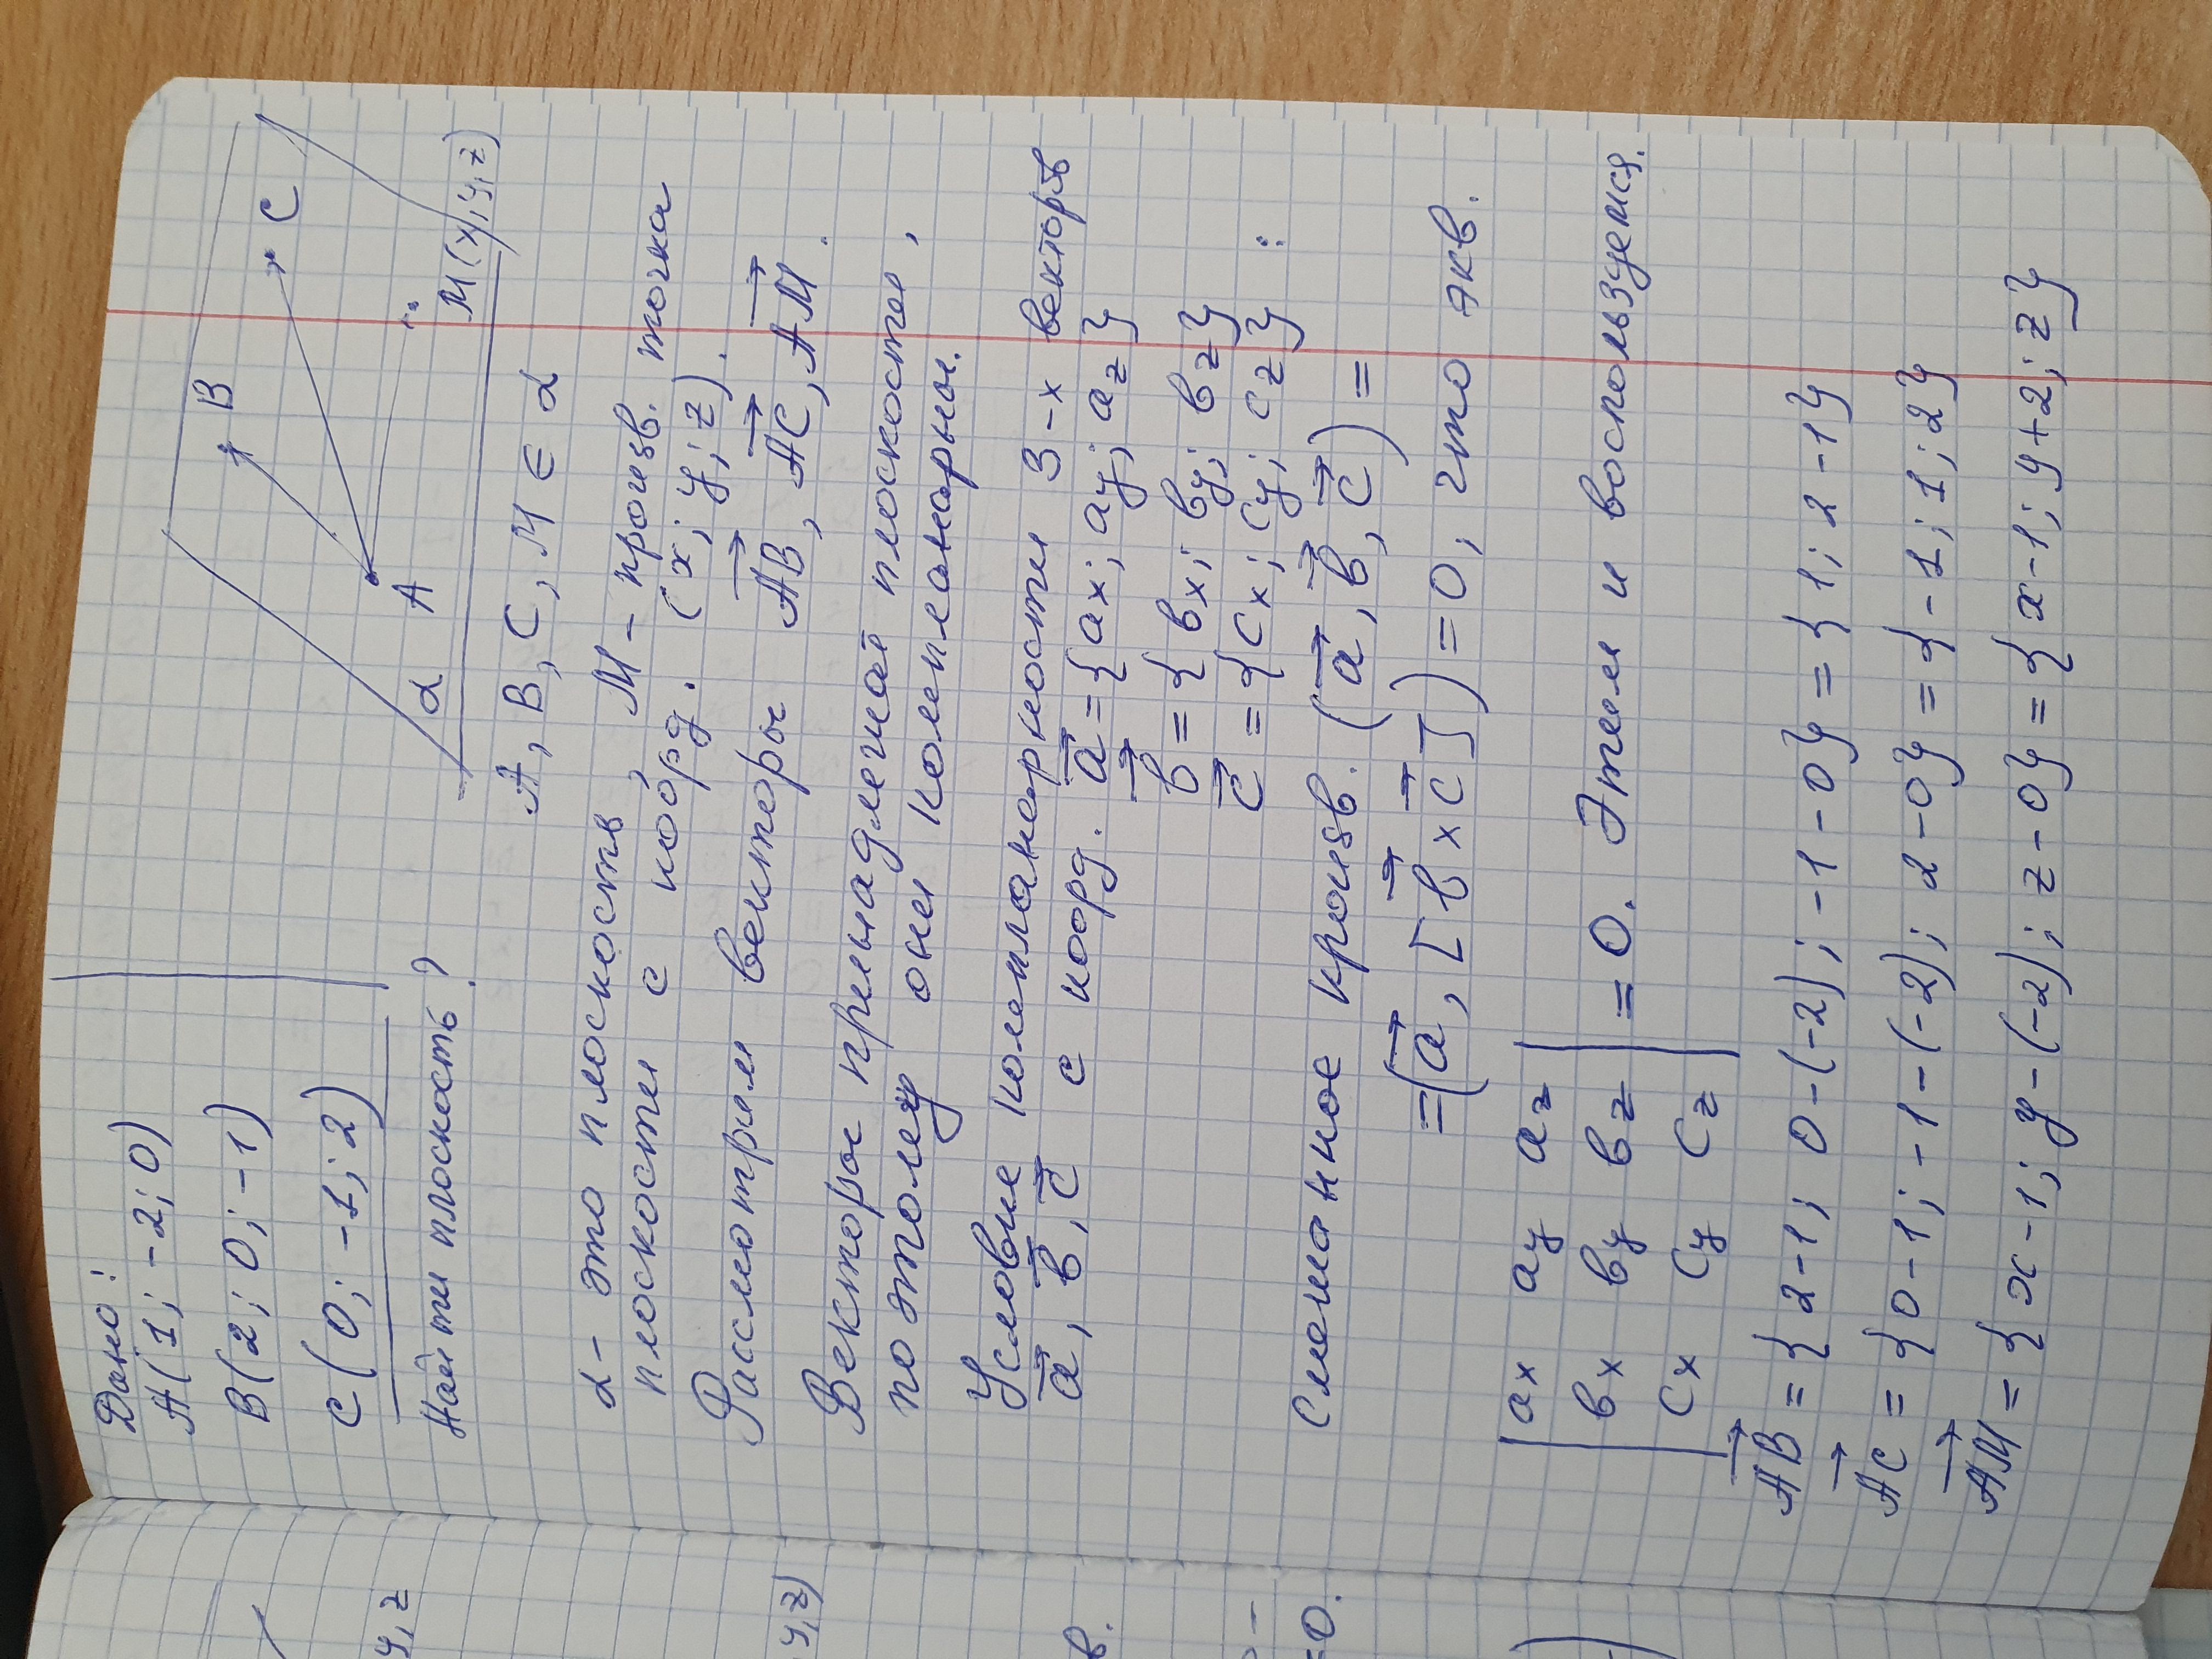 Дано:
A(1; -2; 0)
B(2; 0; -1)
C(0; -1; 2)
Найти плоскость?
B
C
A
α
M(x; y; z)
A, B, C, M ∈ α
α - это плоскость, M - произв. точка
плоскости с коорд. (x; y; z).
Рассмотрим векторы AB, AC, AM.
Векторы принадлежат плоскости,
поэтому они компланарны.
Условие компланарности 3-х векторов
a, b, c с коорд. a = {ax; ay; az}
b = {bx; by; bz}
c = {cx; cy; cz} :
Смешанное произв. (a, b, c) =
= (a, [b x c]) = 0, что экв.
|ax ay az|
|bx by bz| = 0. Этим и воспользуемся.
|cx cy cz|
AB = {2-1; 0-(-2); -1-0} = {1; 2-1}
AC = {0-1; -1-(-2); 2-0} = {-1; 1; 2}
AM = {x-1; y-(-2); z-0} = {x-1; y+2; z}
y, z
y, z)
в.
=0.